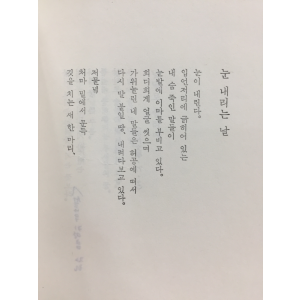 눈 내리는 날
눈이 내린다.
입언저리에 굶어 있는
내 숨 죽인 말들이
눈발에 이마를 부비고 있다.
희디희게 얼굴 씻으며
가위눌린 내 말들은 허공에 떠서
다시 발 붙일 땅, 내려다보고 있다.
저물녘
처마 밑에서 문득
깃을 치는 새 한 마리.